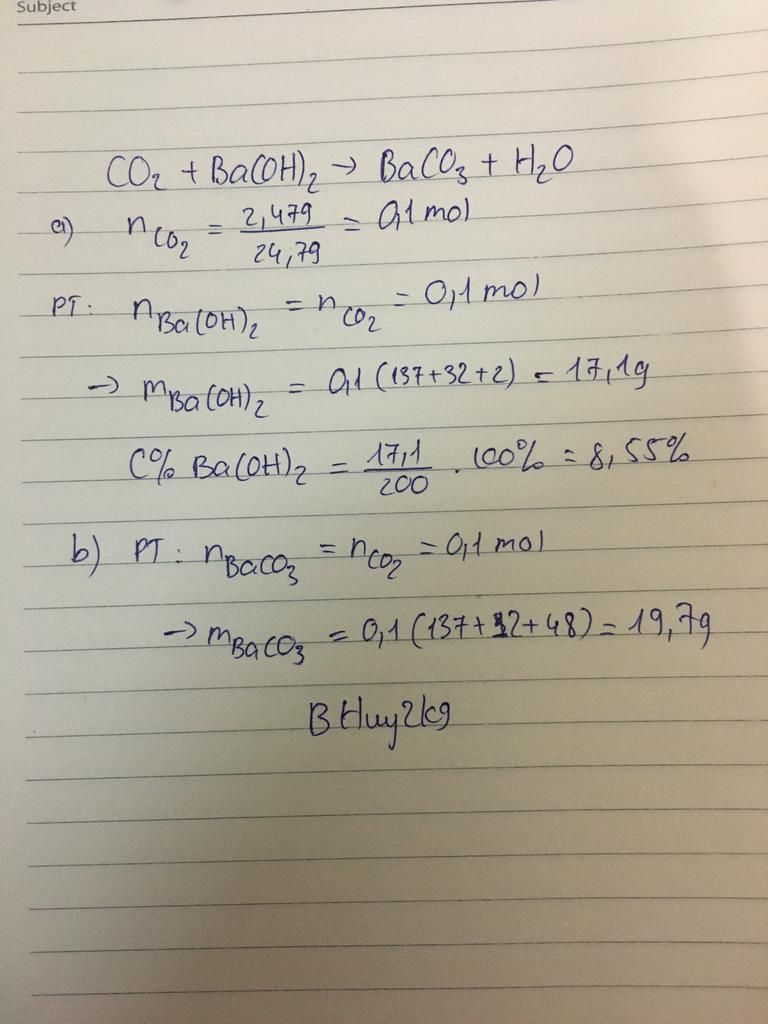 Subject
CO₂ + Ba(OH)₂ → BaCO₃ + H₂O
a) n CO₂ = 2,479 / 24,79 = 0,1 mol
PT: n Ba(OH)₂ = n CO₂ = 0,1 mol
→ m Ba(OH)₂ = 0,1 (137+32+2) = 17,1g
C% Ba(OH)₂ = 17,1 / 200 . 100% = 8,55%
b) PT: n BaCO₃ = n CO₂ = 0,1 mol
→ m BaCO₃ = 0,1 (137+12+48) = 19,7g
BHuy2kg